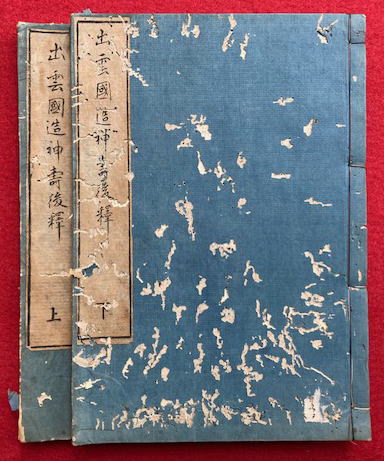 出雲國造神壽後釋 上
出雲國造神壽後釋 下